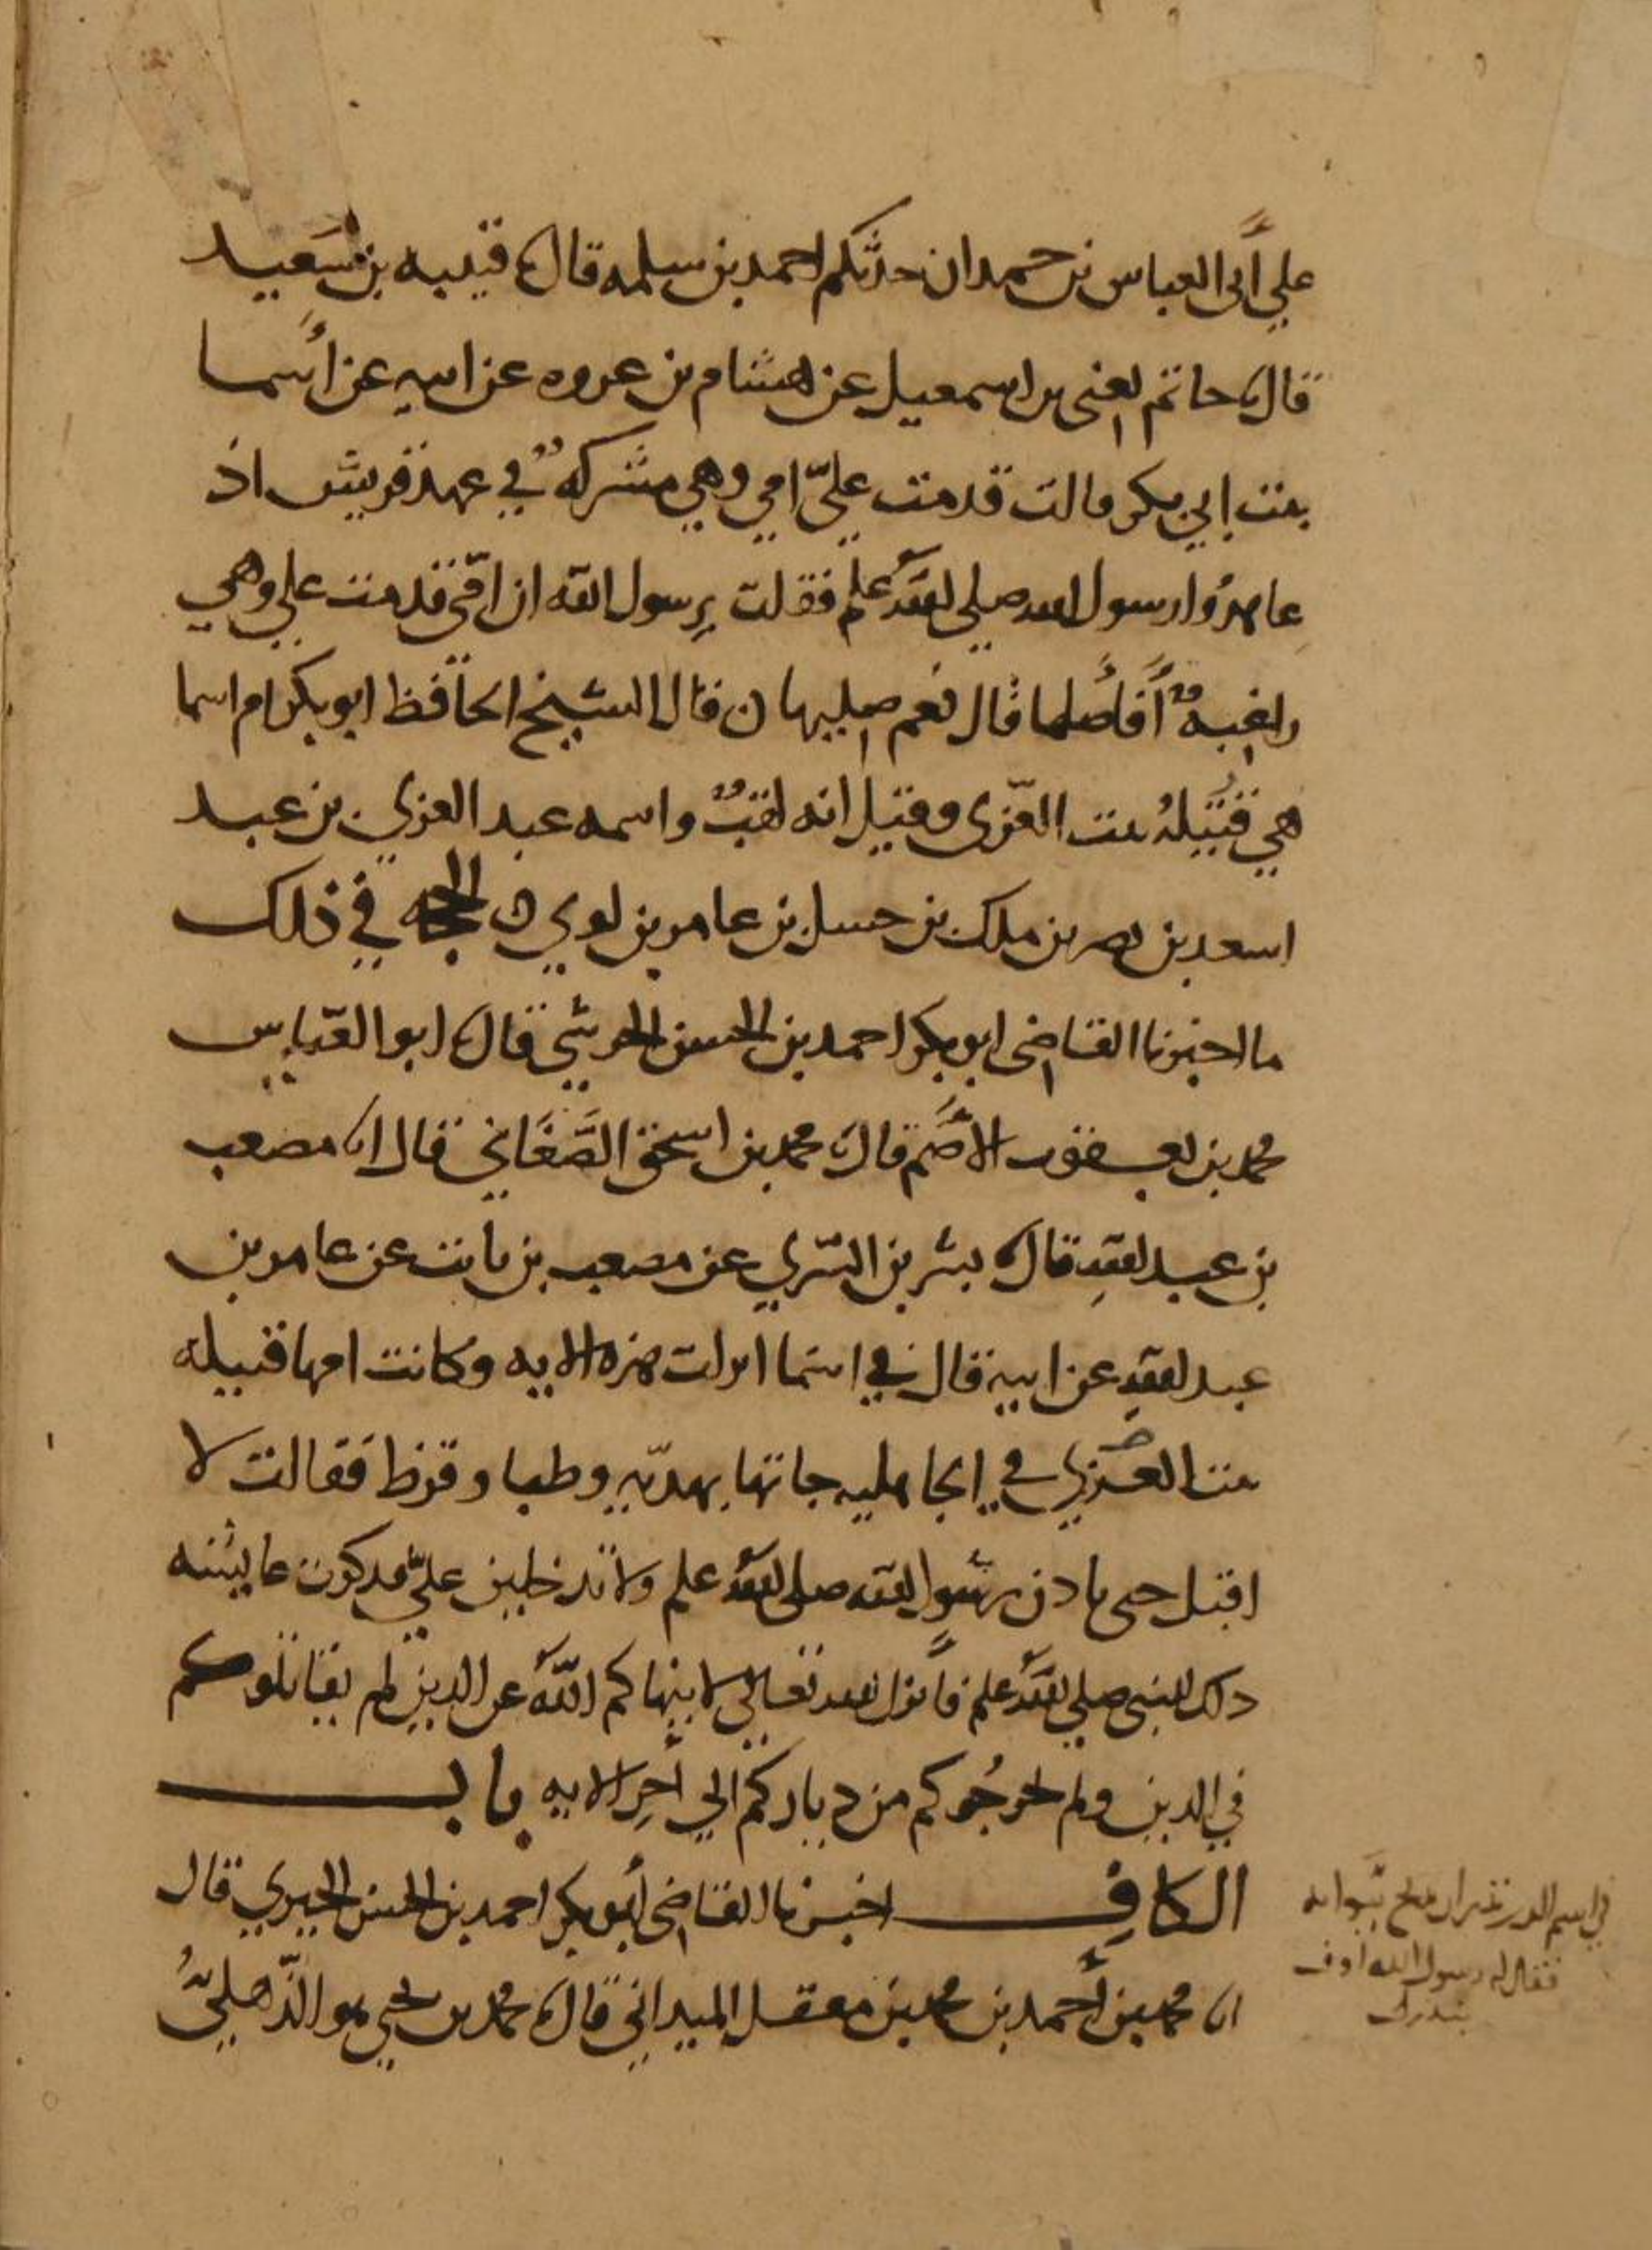 علي أبى العباس بن حمدان حدثكم احمد بن سلمه قال ثنا قتيبه بن سعيد
قال ثنا حاتم يعنى بن اسمعيل عن هشام بن عروه عن ابيه عن أسما
بنت ابي بكر قالت قدمت عليّ امي وهي مشركةٌ في عهد قريش اذ
عاهدُوا رسول الله صلى الله علم فقلت يرسول الله ان امّي قدمت علي وهي
راغبةٌ أفأصلها قال نعم صليها ن قال الشيخ الحافظ ابو بكر ام اسما
هي قُتَيلهُ بنت العزّى وقيل انه لقبٌ واسمه عبد العزي بن عبد
اسعد بن نصر بن ملك بن حسل بن عامر بن لوي ن الحجه في ذلك
ما اخبرنا القاضى ابو بكر احمد بن الحسن الحرشي قال ثنا ابو العبّاس
محمد بن يعقوب الأصَم قال ثنا محمد بن اسحق الصَّغَاني قال انا مصعب
بن عبد الله قال ثنا بشر بن السّري عن مصعب بن ثابت عن عامر بن
عبد الله عن ابيه قال في اسما انزلت هذه الايه وكانت امها قتيله
بنت العزي في الجاهليه جاتها بهديّه وطبا وقرظ فقالت لا
اقبل حتى ياذن رسول الله صلى الله علم ولا تدخلين عليّ فذكرت عايشه
ذلك للنبى صلى الله علم فأنزل الله تعالي لا ينهاكم اللّه عن الذين لم يقاتلوكم
في الدين ولم يخرجُوكم من دياركم الي أخر الايه باب
الكاف اخبرنا القاضى أبو بكر احمد بن الحسن الحيري قال
انا محمد بن أحمد بن محمد بن معقل الميداني قال ثنا محمد بن يحيي هو الذّهليّ
في اسم
فقال له رسول الله اوف
بنذرك